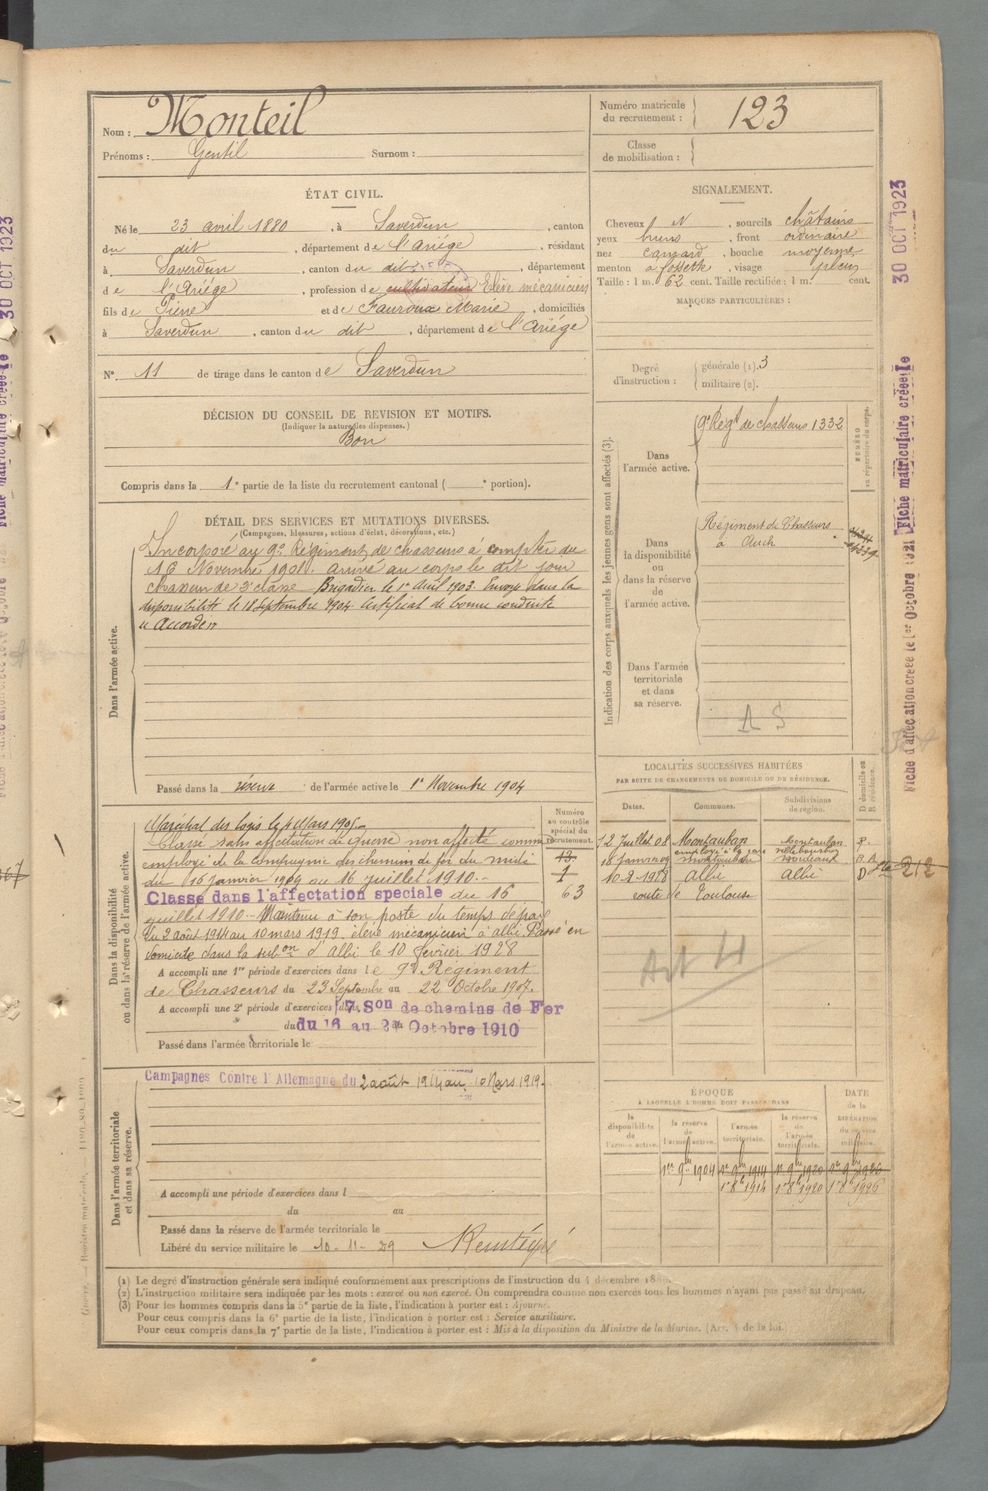 Nom : Monteil
Prénoms : Gentil Surnom :
Numéro matricule du recrutement : 123
Classe de mobilisation :
ÉTAT CIVIL.
Né le 23 avril 1880, à Saverdun, canton
du dit, département de l'Ariége, résidant
à Saverdun, canton du dit, département
de l'Ariége, profession de cultivateur Elève mécanicien
fils de Pierre et de Fauroux Marie, domiciliés
à Saverdun, canton du dit, département de l'Ariége
N° 11 de tirage dans le canton de Saverdun
DÉCISION DU CONSEIL DE REVISION ET MOTIFS.
(Indiquer la nature des dispenses.)
Bon
Compris dans la 1e partie de la liste du recrutement cantonal ( e portion).
SIGNALEMENT.
Cheveux N, sourcils châtains
yeux bruns, front ordinaire
nez camard, bouche moyenne
menton à fossette, visage
Taille : 1 m. 62 cent. Taille rectifiée : 1 m. cent.
MARQUES PARTICULIÈRES :
Degré d'instruction : générale (1). 3
militaire (2).
DÉTAIL DES SERVICES ET MUTATIONS DIVERSES.
(Campagnes, blessures, actions d'éclat, décorations, etc.)
Dans l'armée active.
Incorporé au 9e Régiment de chasseurs à compter du
16 Novembre 1901. arrivé au corps le dit jour
chasseur de 2e classe Brigadier le 1er Avril 1903 Envoyé dans la
disponibilité le 18 septembre 1904 Certificat de bonne conduite
"Accordé"
Passé dans la réserve de l'armée active le 1er Novembre 1904
Indication des corps auxquels les jeunes gens sont affectés (3).
NUMÉRO au répertoire du corps.
Dans l'armée active.
9e Régt de chasseurs 1332
Dans la disponibilité ou dans la réserve de l'armée active.
Régiment de Chasseurs
à Auch
Dans l'armée territoriale et dans sa réserve.
Dans la disponibilité ou dans la réserve de l'armée active.
Numéro au contrôle spécial du recrutement.
Maréchal des logis le 4 Mars 1905.
Classé sans affectation de guerre non affecté comme
employé de la compagnie des chemins de fer du midi
du 16 janvier 1909 au 16 juillet 1910.-
63
Classe dans l'affectation speciale du 16
juillet 1910.- Maintenu à son poste du temps de paix
du 2 août 1914 au 10 mars 1919. élève mécanicien à Albi. Passé en
domicile dans la subon d'Albi le 10 fevrier 1928
A accompli une 1re période d'exercices dans le 9e Régiment
de Chasseurs du 23 Septembre au 22 Octobre 1907.
A accompli une 2e période d'exercices dans la 7 Son de chemins de Fer
du 16 au Octobre 1910
Passé dans l'armée territoriale le
LOCALITÉS SUCCESSIVES HABITÉES
PAR SUITE DE CHANGEMENTS DE DOMICILE OU DE RÉSIDENCE.
Dates. Communes. Subdivisions de région. D domicile ou R résidence.
12 Juillet 08 Montauban Montauban R.
10-2-1928 Albi Albi D
route de Toulouse
Art 4
Dans l'armée territoriale et dans sa réserve.
Campagnes Contre l'Allemagne du 2 août 1914 au 10 Mars 1919.
A accompli une période d'exercices dans l
du au
Passé dans la réserve de l'armée territoriale le
Libéré du service militaire le 10-11-29
ÉPOQUE
À LAQUELLE L'HOMME DOIT PASSER DANS
DATE de la LIBÉRATION du service militaire.
la disponibilité de l'armée active. la réserve de l'armée active. l'armée territoriale. la réserve de l'armée territoriale.
1er 9bre 1904 1er 9bre 1914 1er 9bre 1920 1er 9bre 1926
1er 8bre 1914 1er 8bre 1920 1er 8bre 1926
(1) Le degré d'instruction générale sera indiqué conformément aux prescriptions de l'instruction du 4 décembre
(2) L'instruction militaire sera indiquée par les mots : exercé ou non exercé. On comprendra comme non exercés tous les hommes n'ayant pas passé au drapeau.
(3) Pour les hommes compris dans la 5e partie de la liste, l'indication à porter est : Ajourné.
Pour ceux compris dans la 6e partie de la liste, l'indication à porter est : Service auxiliaire.
Pour ceux compris dans la 7e partie de la liste, l'indication à porter est : Mis à la disposition du Ministre de la Marine.
Fiche matriculaire créée le 30 OCT 1923